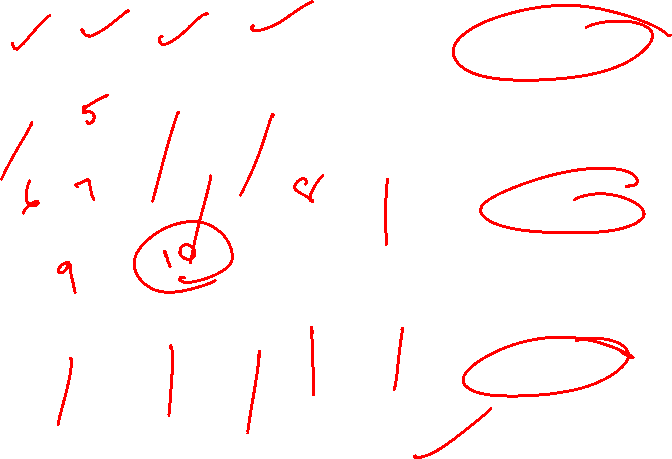 ✓ ✓ ✓ ✓
5
/ / /
6 7 8 |
9 10
| | / | |
✓